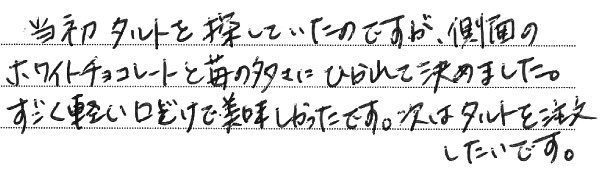 当初タルトを探していたのですが、側面の
ホワイトチョコレートと苺の多さにひかれて決めました。
すごく軽い口どけで美味しかったです。次はタルトを注文
したいです。